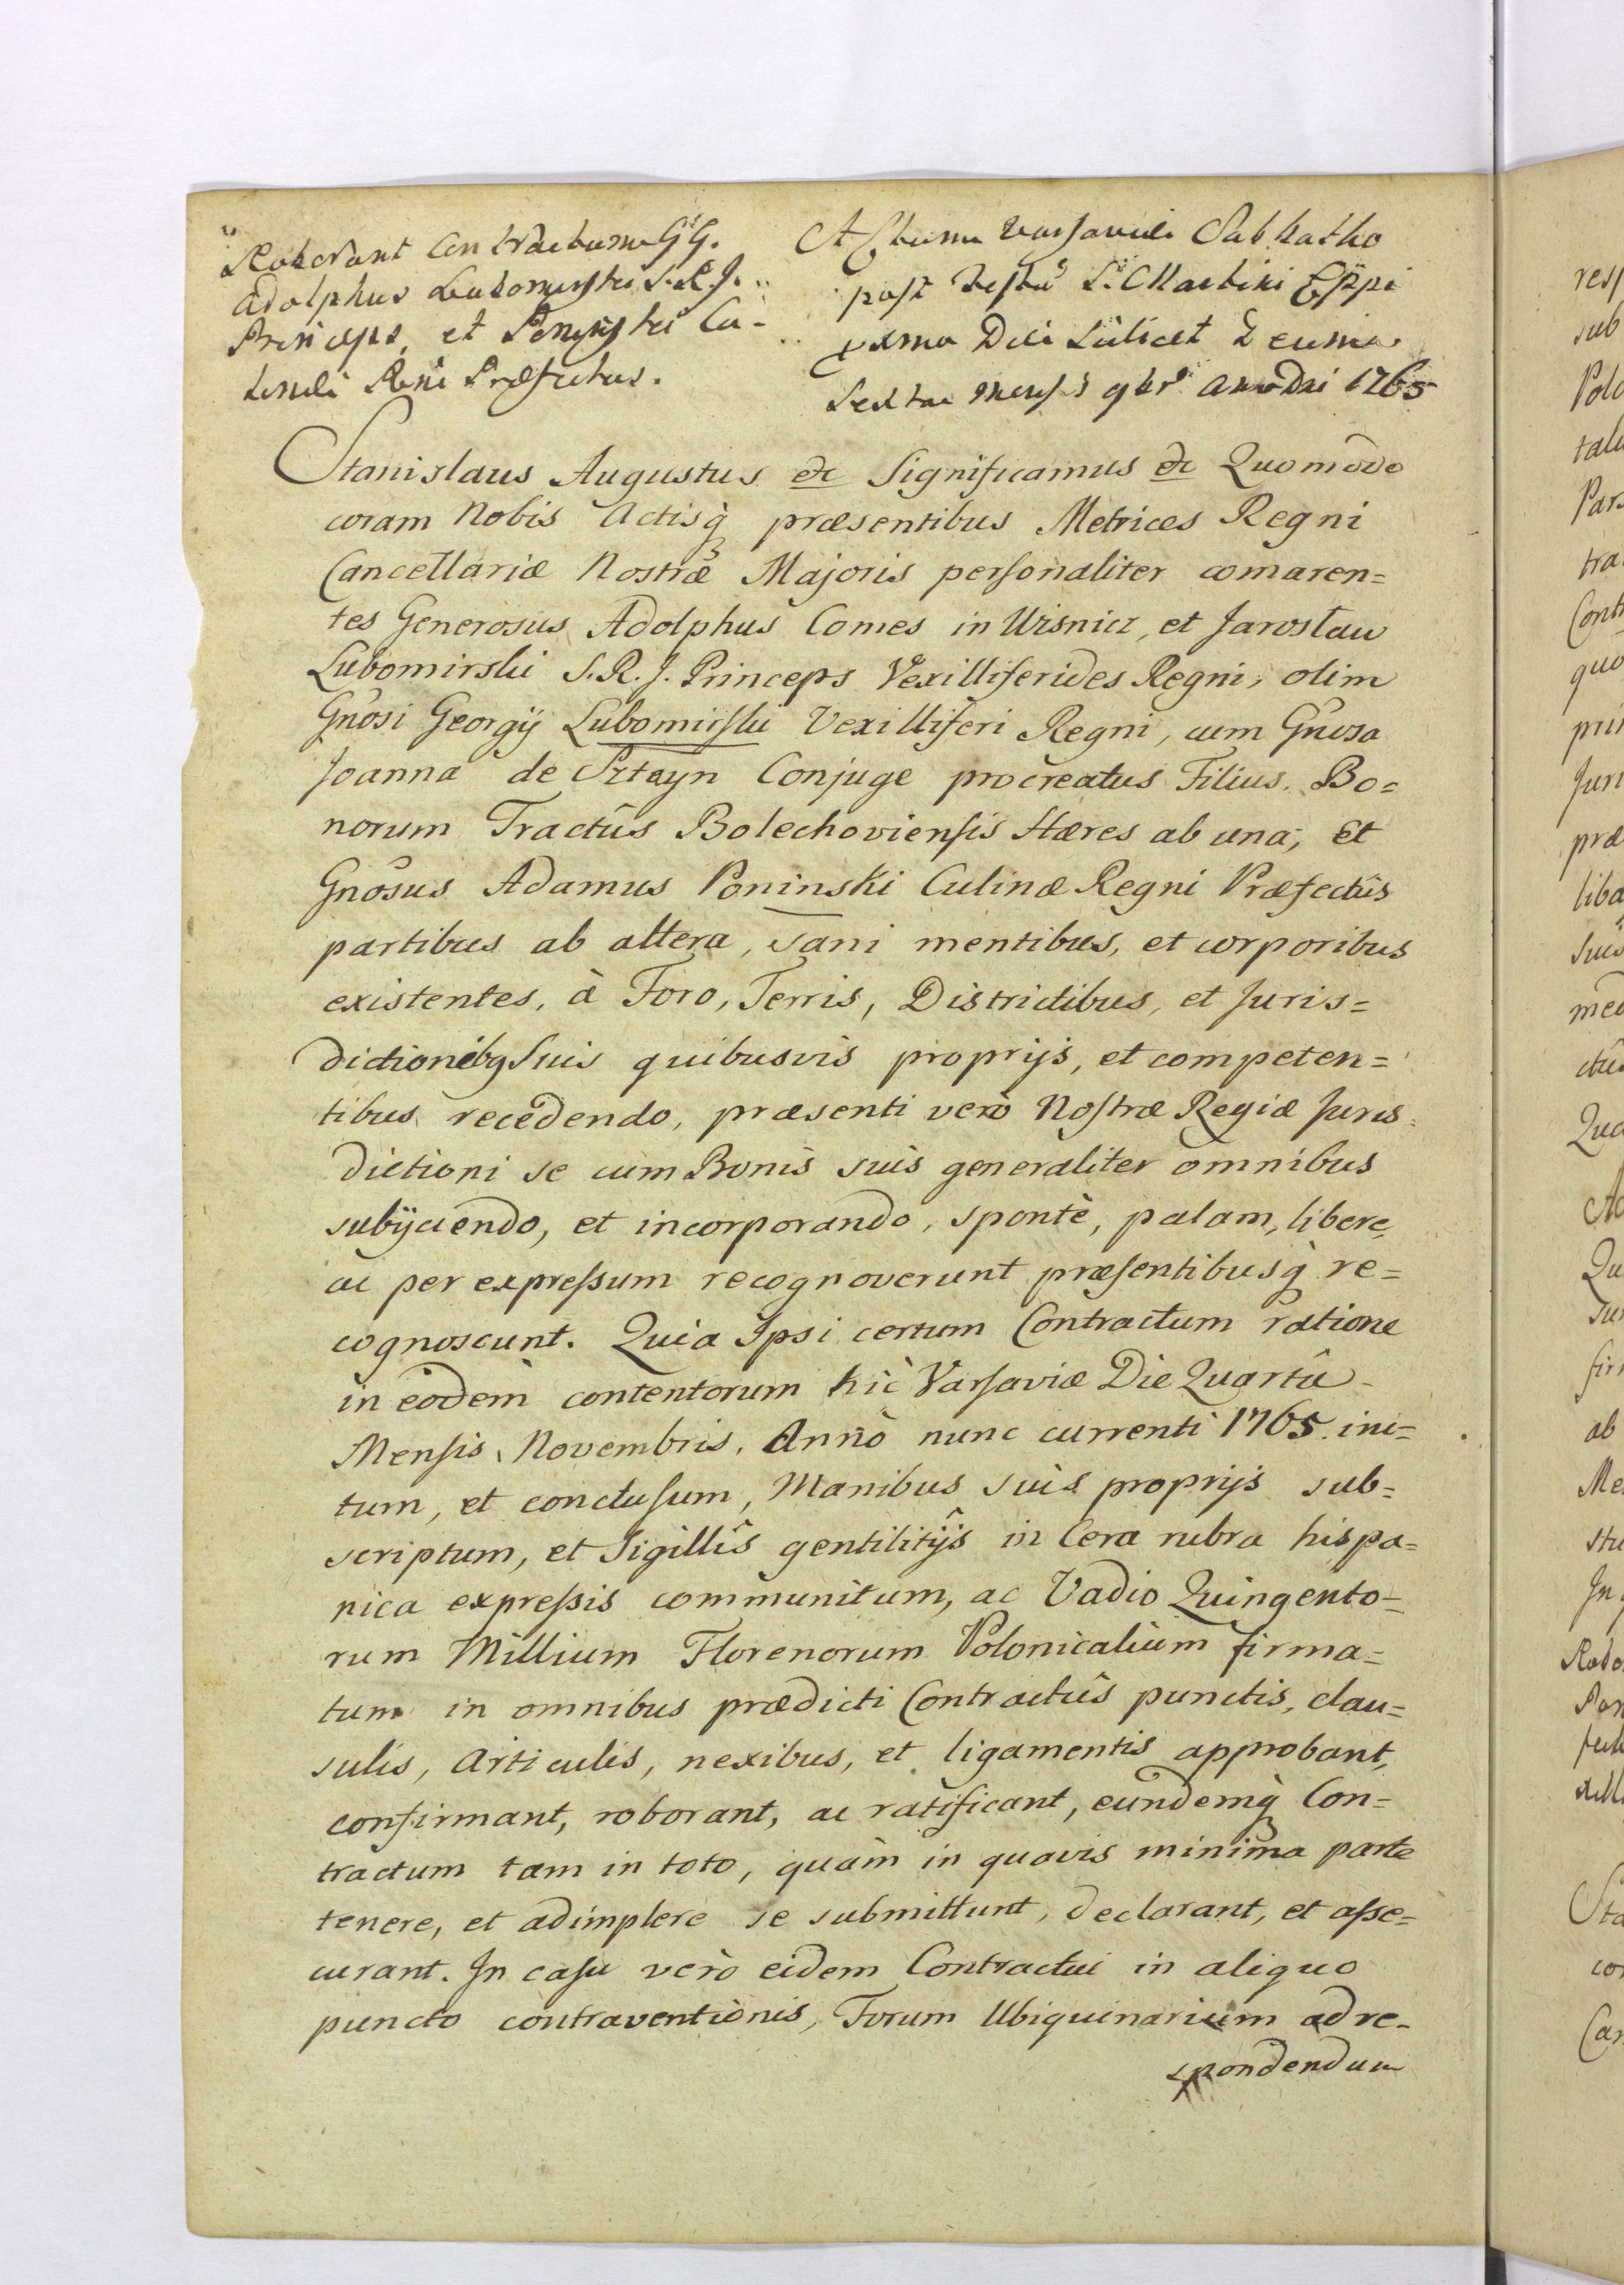 Roborant Contractum GG.
Adolphus Lubomirski S.R.J.
Princeps, et Poninski Cu-
linæ Rni Præfectus.
Actum Varsaviæ Sabbatho
post Festũ S. Martini Eppi
pxmo Die scilicet Decima
Sexta Mensis 9brs Anno Dni 1765
Stanislaus Augustus etc Significamus etc Quomodo
coram Nobis Actisq̃ præsentibus Metrices Regni
Cancellariæ Nostræ Majoris personaliter comparen=
tes Generosus Adolphus Comes in Wisnicz, et Jaroslaw
Lubomirski S.R.J. Princeps Vexilliferides Regni, olim
Gñosi Georgÿ Lubomirski Vexilliferi Regni, cum Gñosa
Joanna de Sztayn Conjuge procreatus Filius. Bo=
norum Tractûs Bolechoviensis Hæres ab una, Et
Gñosus Adamus Poninski Culinæ Regni Præfectus
partibus ab altera, sani mentibus, et corporibus
existentes, à Foro, Terris, Districtibus, et Juris=
dictionibq Suis quibusvis proprijs, et competen=
tibus recedendo, præsenti verò Nostræ Regiæ Juris=
dictioni se cum Bonis suis generaliter omnibus
subÿciendo, et incorporando, spontè, palam, libere,
ac per expressum recognoverunt præsentibusq̃ re=
cognoscunt. Quia Ipsi certum Contractum ratione
in eodem contentorum hic Varsaviæ Die Quartâ
Mensis Novembris, Annò nunc currenti 1765. ini=
tum, et conclusum, Manibus suis proprijs sub=
scriptum, et Sigillis gentilitÿs in Cera rubra hispa=
nica expressis communitum, ac Vadio Quingento=
rum Millium Florenorum Polonicalium firma=
tum in omnibus prædicti Contractûs punctis, clau=
sulis, Articulis, nexibus, et ligamentis approbant,
confirmant, roborant, ac ratificant, eundemq̃ Con=
tractum tam in toto, quàm in quavis minima parte
tenere, et adimplere se submittunt, declarant, et asse=
curant. In casu verò eidem Contractui in aliquo
puncto contraventionis, Forum Ubiquinarium ad re-
spondendum